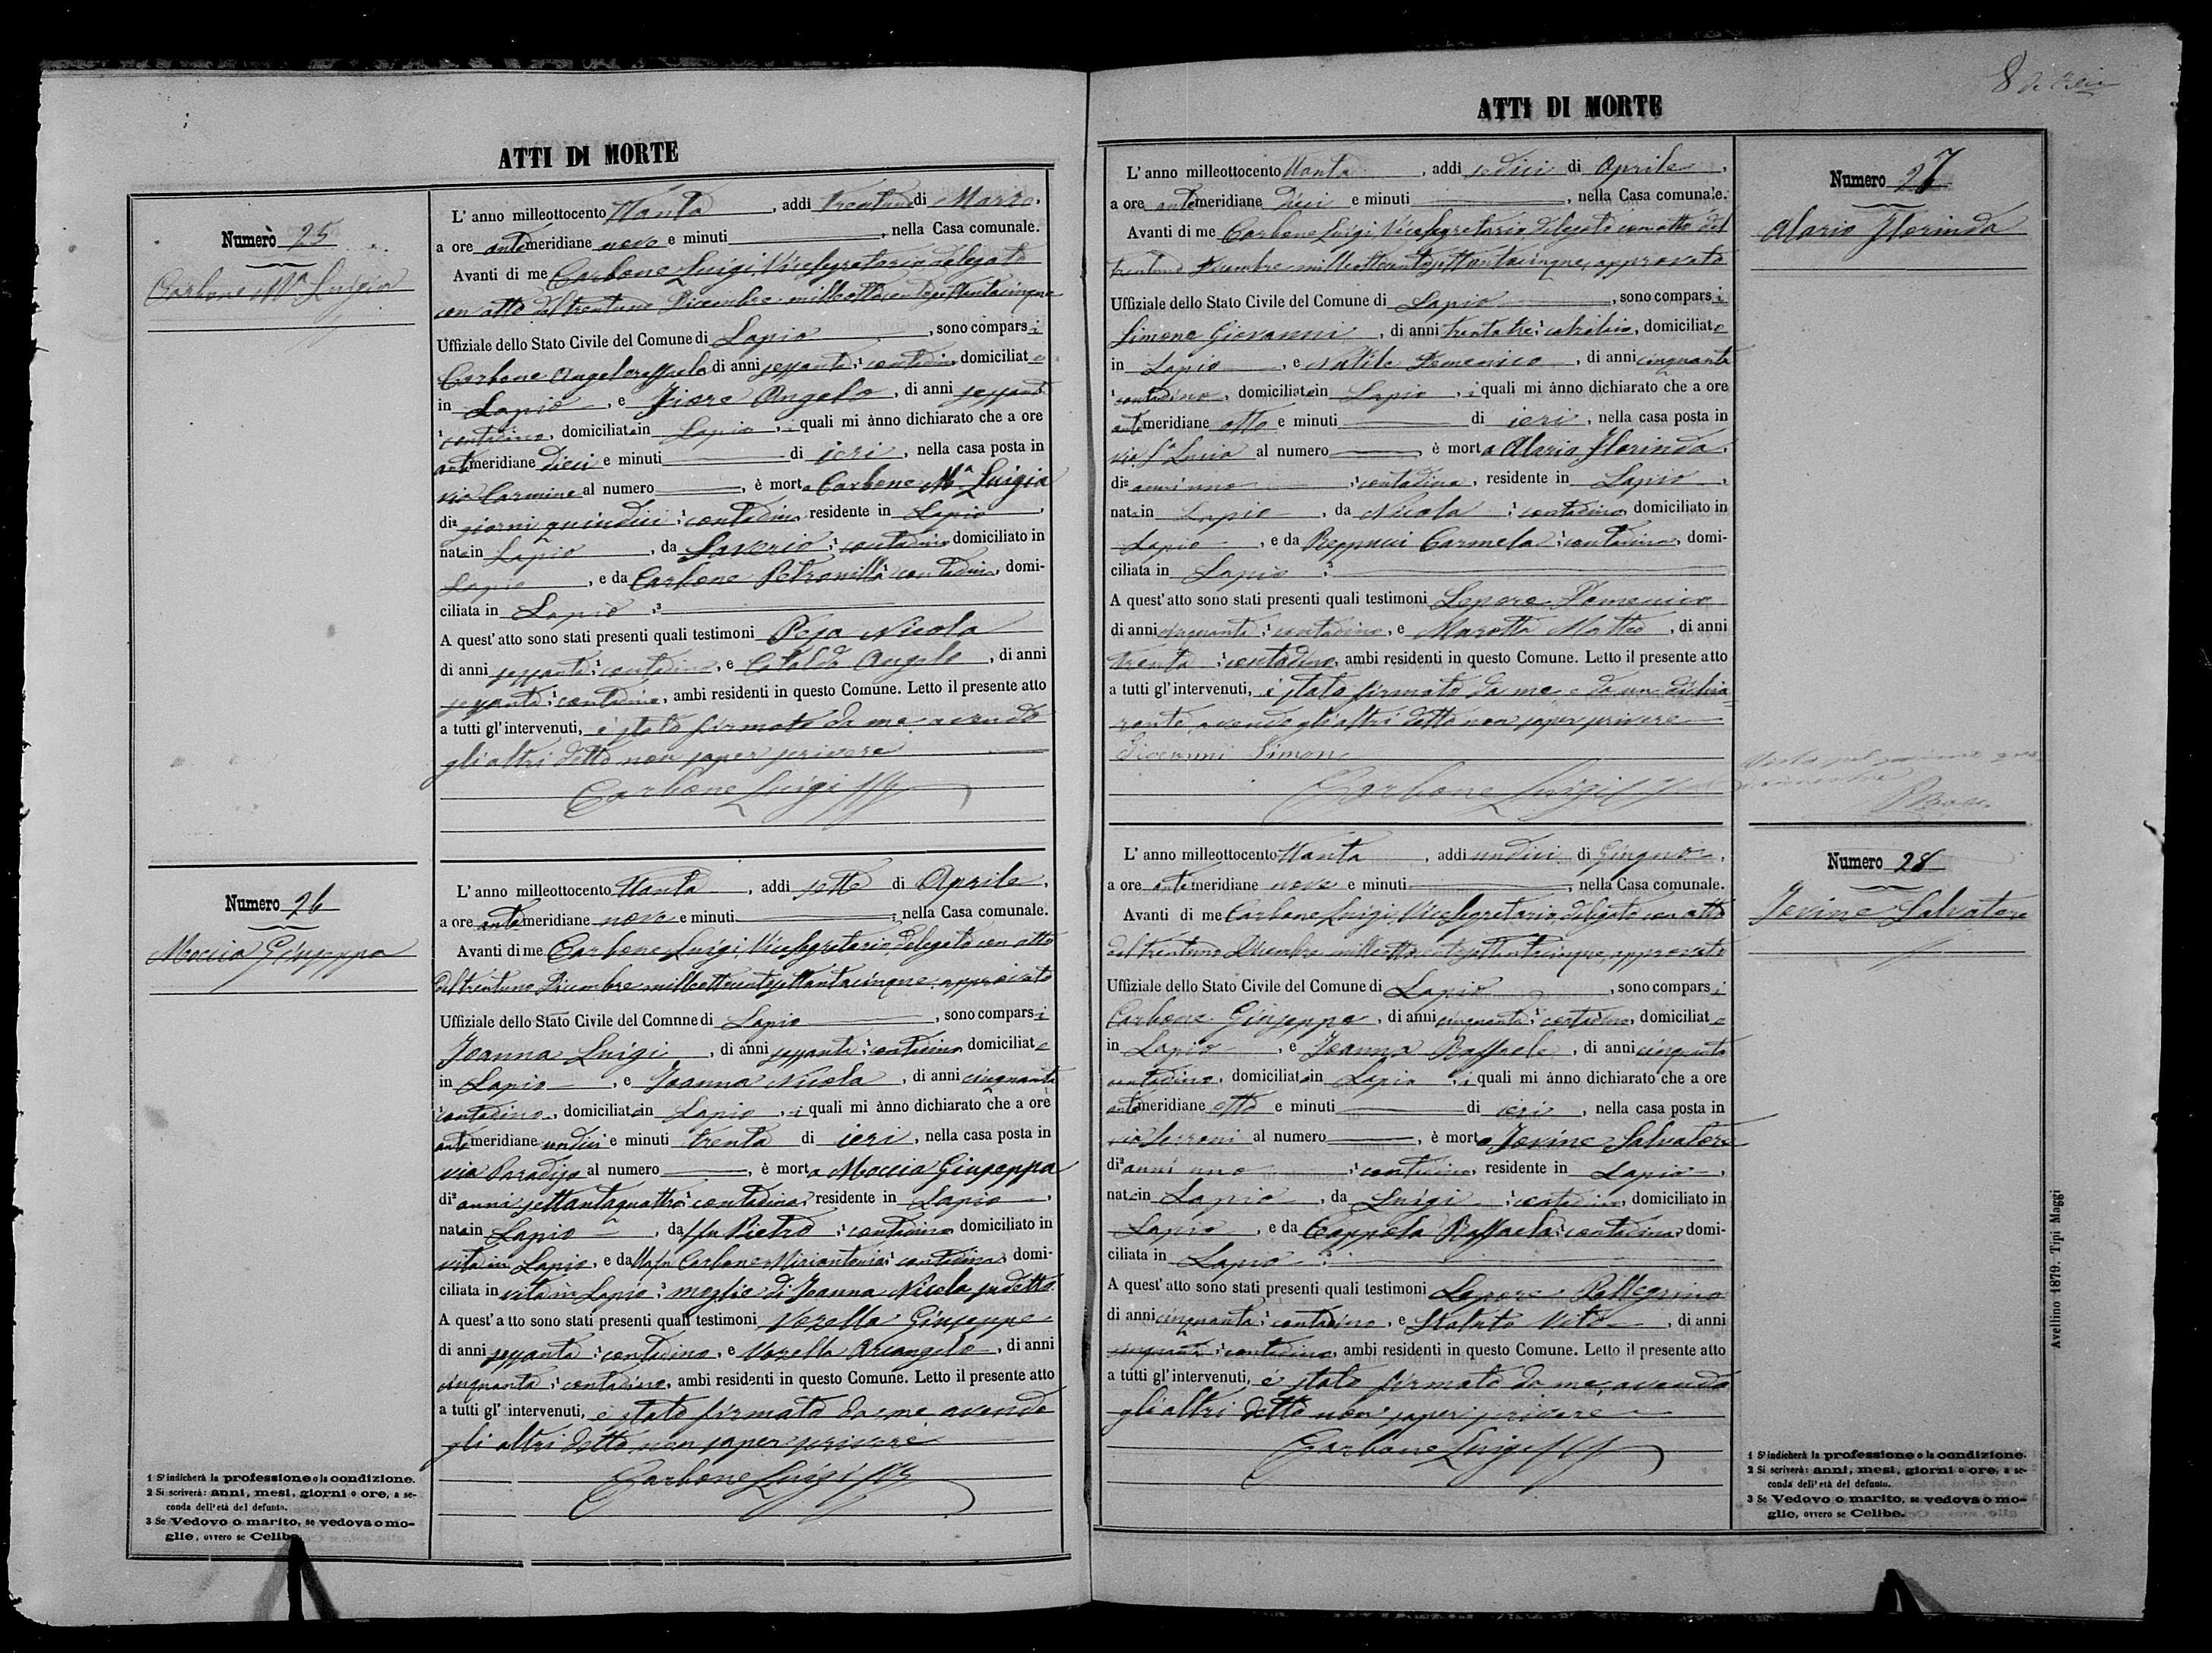 ATTI DI MORTE
Numero 25
Carbone Mª Luigia
L' anno milleottocento ttanta, addì trentuno di Marzo,
a ore antemeridiane nove e minuti, nella Casa comunale.
Avanti di me Carbone Luigi, Vicesegretario delegato
con atto del trentuno Dicembre milleottocentosettantacinque
Uffiziale dello Stato Civile del Comune di Lapio, sono comparsi
Carbone Angeloraffaele di anni sessanta, contadino domiciliato
in Lapio, e Fiore Angelo, di anni sessanta
contadino, domiciliato in Lapio, i quali mi ànno dichiarato che a ore
antimeridiane dieci e minuti di ieri, nella casa posta in
via Carmine al numero, è morta Carbone Mª Luigia
di² giorni quindici, contadina residente in Lapio,
nata in Lapio, da Saverio, contadino domiciliato in
Lapio, e da Carbone Petronilla contadina, domi-
ciliata in Lapio ,³
A quest' atto sono stati presenti quali testimoni Peja Nicola
di anni sessanta, contadino, e Cataldo Angelo, di anni
sessanta, contadino, ambi residenti in questo Comune. Letto il presente atto
a tutti gl' intervenuti, è stato firmato da me avendo
gli altri detto non saper scrivere
Carbone Luigi
Numero 26
Moccia Giuseppa
L' anno milleottocento ttanta, addì sette di Aprile,
a ore antemeridiane nove e minuti, nella Casa comunale.
Avanti di me Carbone Luigi, Vicesegretario, delegato con atto
del trentuno Dicembre milleottocentosettantacinque, approvato
Uffiziale dello Stato Civile del Comnne di Lapio, sono comparsi
Joanna Luigi, di anni sessanta, contadino domiciliato
in Lapio, e Joanna Nicola, di anni cinquanta
contadino, domiciliato in Lapio, i quali mi ànno dichiarato che a ore
antemeridiane undici e minuti trenta di ieri, nella casa posta in
via Paradiso al numero, è morta Moccia Giuseppa
di² anni settantaquattro, contadina, residente in Lapio,
nata in Lapio, da fu Pietro, contadino domiciliato in
vita in Lapio, e da fu Carbone Mariantonia, contadina, domi-
ciliata in vita in Lapio, ³ moglie di Joanna Nicola sudetto
A quest' a tto sono stati presenti quali testimoni Vozella Giuseppe
di anni sessanta, contadino, e Vozella Arcangelo, di anni
cinquanta, contadino, ambi residenti in questo Comune. Letto il presente atto
a tutti gl' intervenuti, è stato firmato da me avendo
gli altri detto non saper scrivere
Carbone Luigi
1 S' indicherà la professione o la condizione.
2 Si scriverà: anni, mesi, giorni o ore, a se-
conda dell' età del defunto.
3 Se Vedovo o marito, se vedova o mo-
glie, ovvero se Celibe.
8
ATTI DI MORTE
Numero 27
Alario Florinda
L' anno milleottocento ttanta, addì sedici di Aprile,
a ore antemeridiane dieci e minuti, nella Casa comunale.
Avanti di me Carbone Luigi, Vicesegretario delegato con atto del
trentuno Dicembre milleottocentosettantacinque, approvato
Uffiziale dello Stato Civile del Comune di Lapio, sono comparsi
Simone Giovanni, di anni trentatre, domiciliato
in Lapio, e Natile Domenico, di anni cinquanta
contadino, domiciliato in Lapio, i quali mi ànno dichiarato che a ore
antemeridiane otto e minuti di ieri, nella casa posta in
via Sª Lucia al numero, è morta Alario Florinda,
di² anni uno, contadina, residente in Lapio,
nata in Lapio, da Nicola, contadino domiciliato in
Lapio, e da Reppucci Carmela, contadina, domi-
ciliata in Lapio ,³
A quest' atto sono stati presenti quali testimoni Lepore Domenico
di anni cinquanta, contadino, e Marotta Matteo, di anni
trenta, contadino, ambi residenti in questo Comune. Letto il presente atto
a tutti gl' intervenuti, è stato firmato da me e da un dichia
rante, avendo gli altri detto non saper scrivere
Giovanni Simone
Carbone Luigi
Numero 28
Jovine Salvatore
L' anno milleottocento ttanta, addì undici di Giugno,
a ore antemeridiane nove e minuti, nella Casa comunale.
Avanti di me Carbone Luigi, Vicesegretario delegato con atto
del trentuno Dicembre milleottocentosettantacinque, approvato
Uffiziale dello Stato Civile del Comune di Lapio, sono comparsi
Carbone Giuseppe, di anni cinquanta, contadino, domiciliato
in Lapio, e Joanna Raffaele, di anni cinquanta
contadino, domiciliato in Lapio, i quali mi ànno dichiarato che a ore
antemeridiane otto e minuti di ieri, nella casa posta in
via al numero, è morto Jovine Salvatore
di² anni uno, contadino, residente in Lapio,
nato in Lapio, da Luigi, contadino, domiciliato in
Lapio, e da Coppola Raffaela, contadina, domi-
ciliata in Lapio ,³
A quest' atto sono stati presenti quali testimoni Lepore Pellegrino
di anni cinquanta, contadino, e Statuto Vito, di anni
cinquanta, contadino, ambi residenti in questo Comune. Letto il presente atto
a tutti gl' intervenuti, è stato firmato da me, avendo
gli altri detto non saper scrivere
Carbone Luigi
1 S' indicherà la professione o la condizione.
2 Si scriverà: anni, mesi, giorni o ore, a se-
conda dell' età del defunto.
3 Se Vedovo o marito, se vedova o mo-
glie, ovvero se Celibe.
Avellino 1879. Tipi Maggi